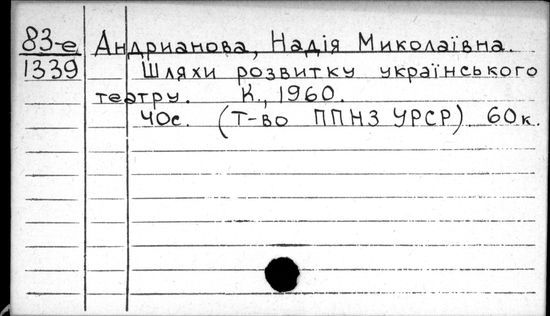 83-е Андрианова, Надія Миколаївна.
1339 Шляхи розвитку українського
театру. К., 1960.
40с. (Т-во ППНЗ УРСР) 60к.